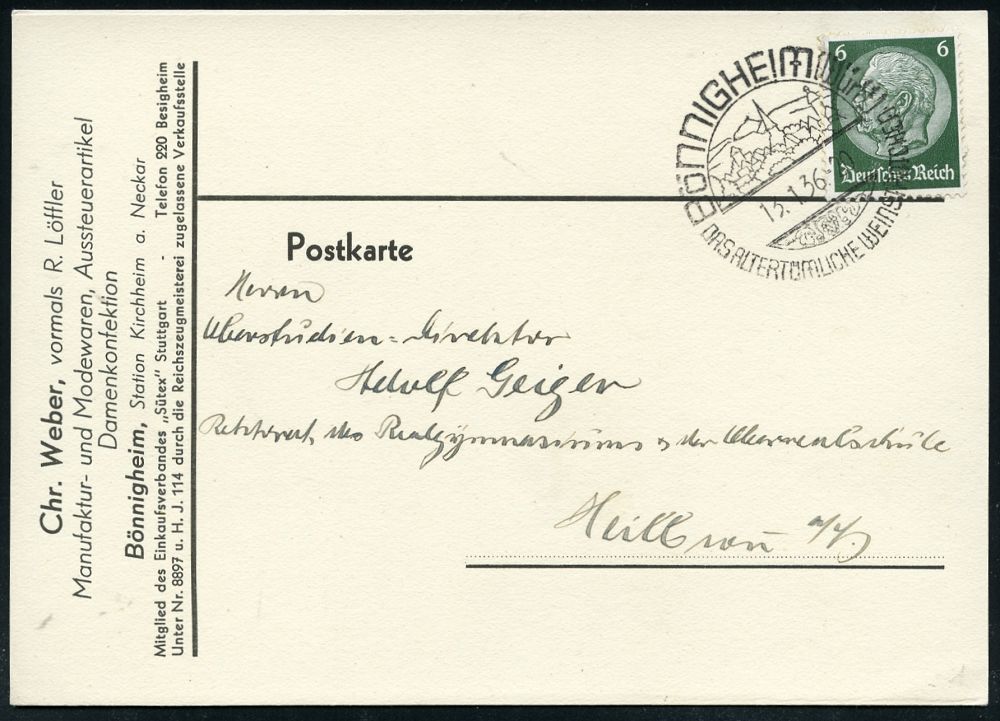 Chr. Weber, vormals R. Löffler
Manufaktur- und Modewaren, Aussteuerartikel
Damenkonfektion
Bönnigheim, Station Kirchheim a. Neckar
Mitglied des Einkaufsverbandes „Sütex" Stuttgart - Telefon 220 Besigheim
Unter Nr. 8897 u. H. J. 114 durch die Reichszeugmeisterei zugelassene Verkaufsstelle
BÖNNIGHEIM (Württ)
DAS ALTERTÜMLICHE
1.36
6 6
Deutsches Reich
Postkarte
Herrn
Oberstudien-Direktor
Adolf Geiger
des Realgymnasiums & der Oberrealschule
Heilbronn a/N.